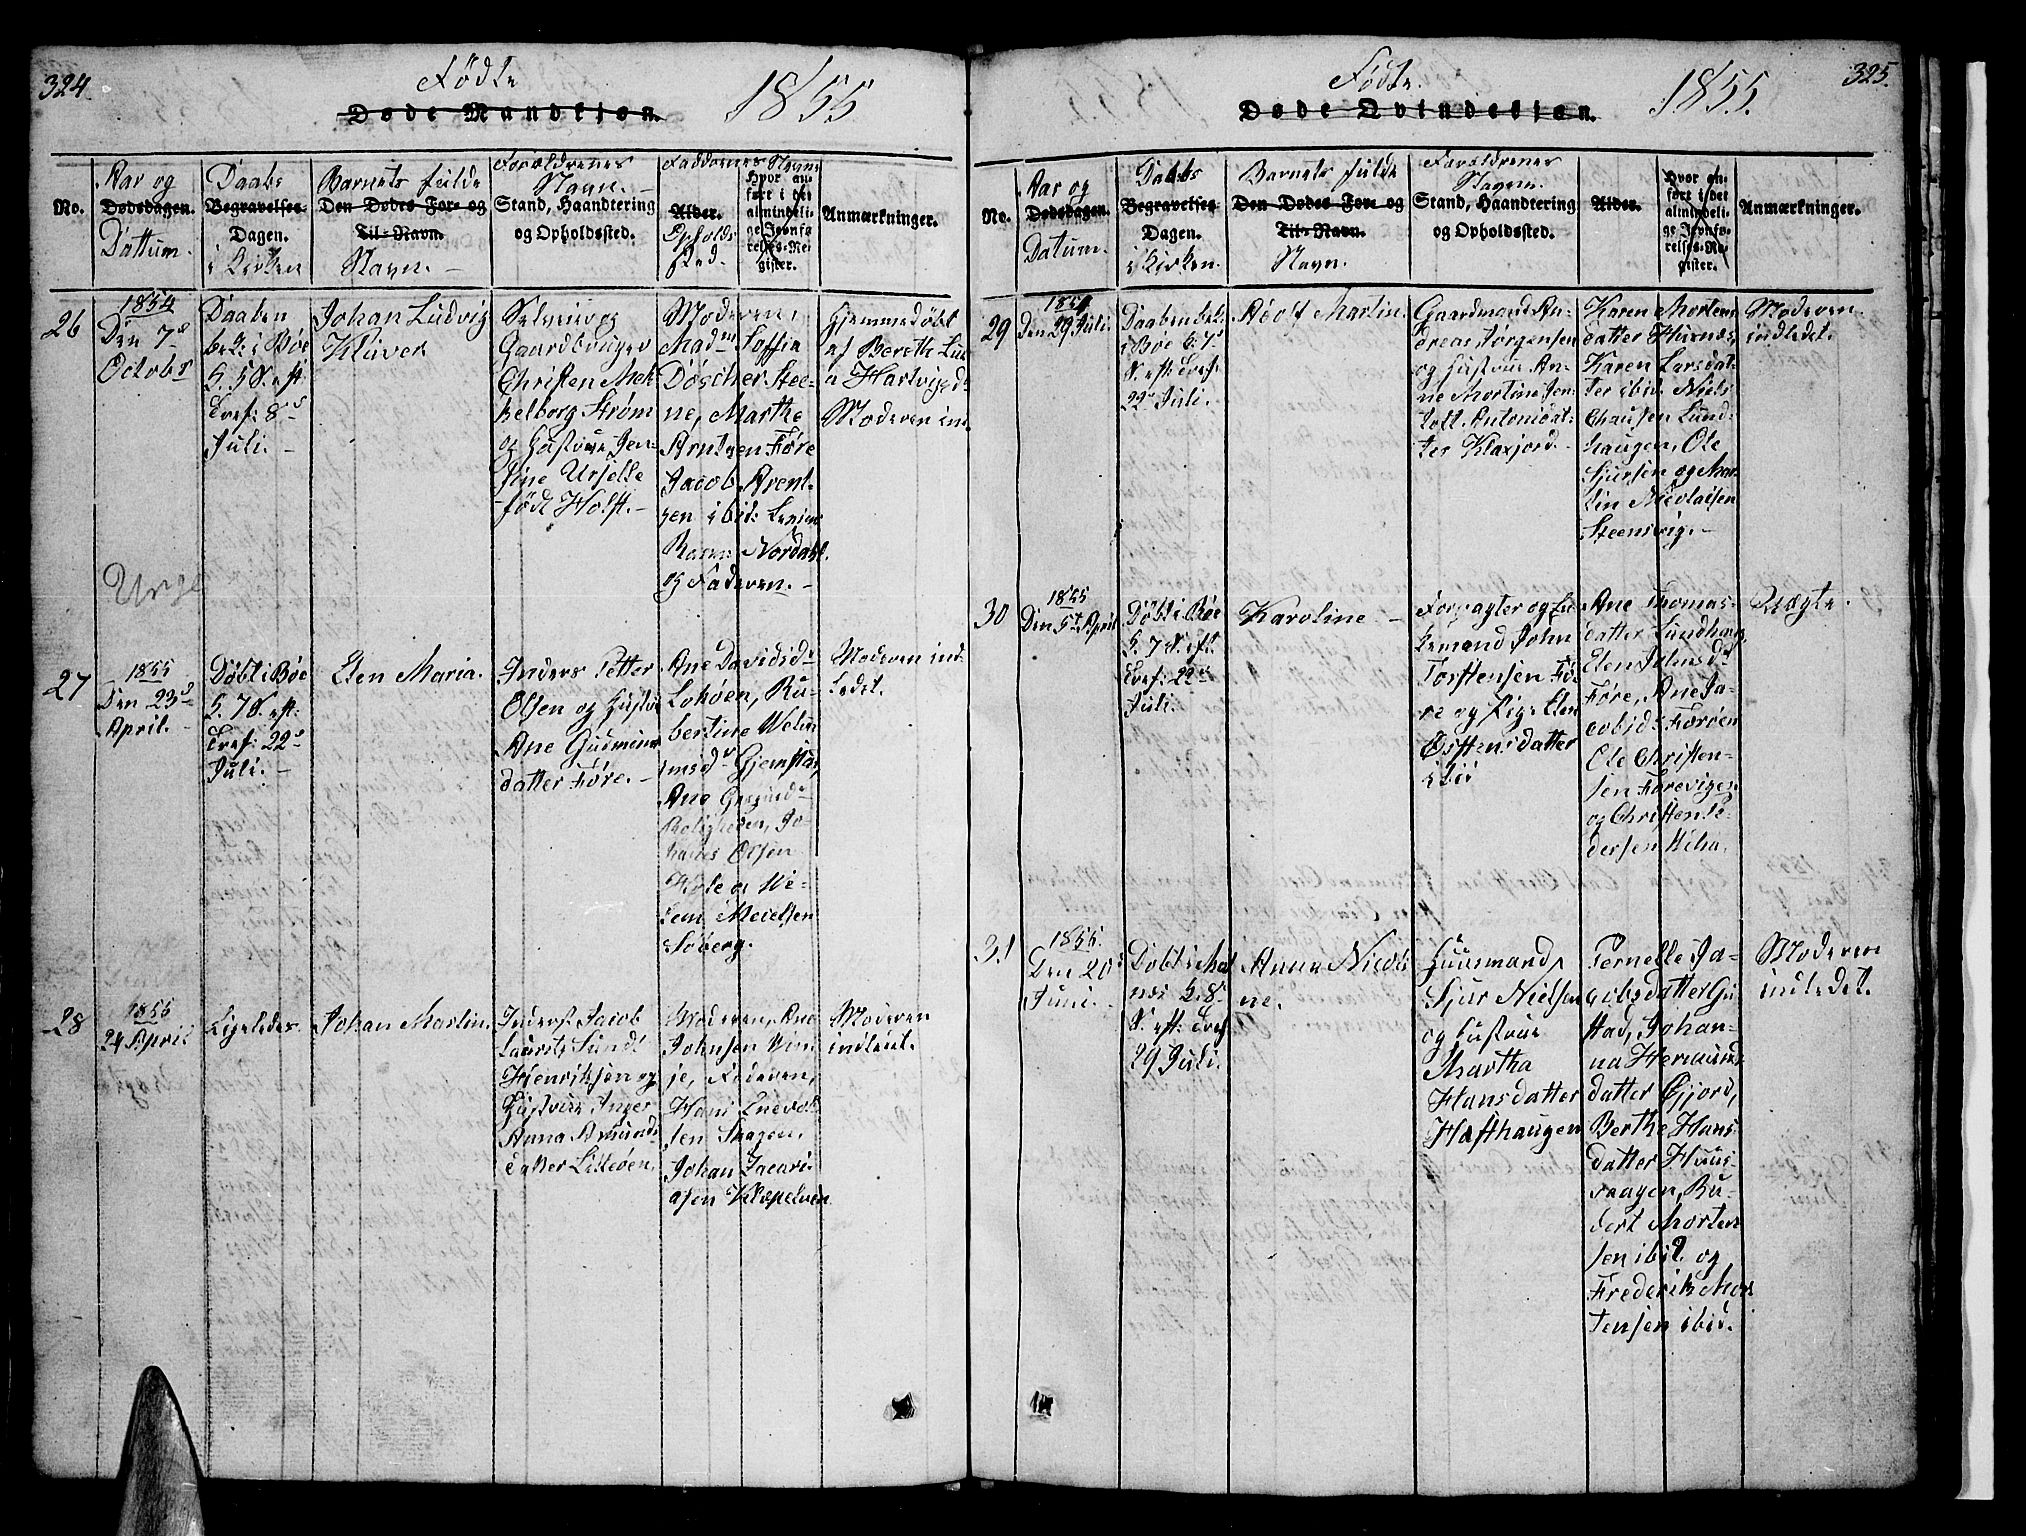 324.
Fødte
Døde Mandkjøn.
1855
No.
Aar og
Dødsdagen.
Dattum.
Daabs
Begravelses-
Dagen.
i Kirken
Barnets fulde
Den Dødes For- og
Til-Navn.
Navn.
Forældrenes
Navn.
Stand, Haandtering
og Opholdssted.
Faddrenes Navn
Alder.
Opholds
sted.
Hvor an-
ført i det
almindeli-
ge Jevnfø-
relses-Re-
gister.
Anmærkninger.
26
1854
Den 7de
Octobr
Daaben
bek: i Bøe
S. 5 S. eft.
Tref: 8de
Juli.
Johan Ludvig
Klüver
Selveier og
Gaardbruger
Christen Mek
kelborg Strøm
og Hustrue Jen-
sine Urselle
født Holst.
Moderen,
Madm Soffia
Døscher Stee-
ne, Marthe
Arntzen Føre
Jacob Arent-
zen ibid:
Nordahl
og Faderen.
Hjemmedøbt
af Bereth Lu
Hartvigsd
Moderen in
27
1855
Den 23de
April.
Døbt i Bøe
S. 7 S. eft.
Tref: 22de
Juli.
Elen Maria.
Inders Petter
Olsen og Hustru
Ane Gudmund
datter Føre.
Ane Davidsd
Lohøen, Ru-
bertine Welum
Gjemstad,
Ane
Roligheden, Jo-
hannes Olsen
Føre og We-
lem Meielsen
Søberg.
Moderen ind-
ledet.
28
1855
24 April
Ligeledes
Johan Martin.
Inderst Jacob
Lauritz Sund
Henriksen og
Hustrue Inger
Anna Amunds
datter Litleøen.
Moderen, Ane
Johnsen Vin-
je, Faderen,
Hans Enevol
sen Skagen,
Johan Zacari-
asen Klæpelven
Moderen
indledt.
325.
Fødte.
Døde Qvindekjøn.
1855.
No.
Aar og
Dødsdagen.
Datum.
Daabs
Begravelses-
Dagen.
i Kirken.
Barnets fulde
Den Dødes For- og
Til-Navn.
Navn.
Forældrenes
Navn.
Stand, Haandtering
og Opholdssted.
Alder.
Hvor an-
ført i det
almindeli-
ge Jevnfø-
relses-Re-
gister.
Anmærkninger.
29
Den 29 Juli.
Daaben
i Bøe S. 7
S. eft: Tref:
22de Juli.
Adolf Martin.
Gaardmand An-
dreas Jørgensen
og Hustrue An-
ne Mortine Jen-
toft Antonidat-
ter Klaxjord.
Karen Mortens
datter Hurnes,
Karen Larsdat-
ter ibid. Niels
Chausen Lund-
haugen, Ole
Sjursen og Mar-
tin Nicolaisen
Steensvig.
Moderen
indledet.
30
1855
Den 5te April
Døbt i Bøe
S. 7 S. eft.
Tref: 22de
Juli.
Karoline
Forpagter og
John
Torstensen Fø-
re og Pige Elen
Østensdatter
ibid
Ane Thomas-
datter Lundhaug
Elen Johnsd
Føre, Ane Ja-
cobsd Færøen
Ole Christen-
sen Førevigen
og Christen Pe-
dersen
Uægte.
31
1855.
Den 20de
Juni.
Døbt i Mal
næs S. 8
S. eft: Tref
29 Juli.
Anna Nicoli
ne.
Huusmand
Sjur Nielsen
og Hustrue
Martha
Hansdatter
Hafthaugen
Pernelle Ja-
cobsdatter Gu-
stad, Johan-
na Hermunds
datter Gjord,
Berthe Hans-
datter Huus-
vaagen, Ru-
dert Morten
sen ibid og
Frederik Mor
tensen ibid.
Moderen
indledet.